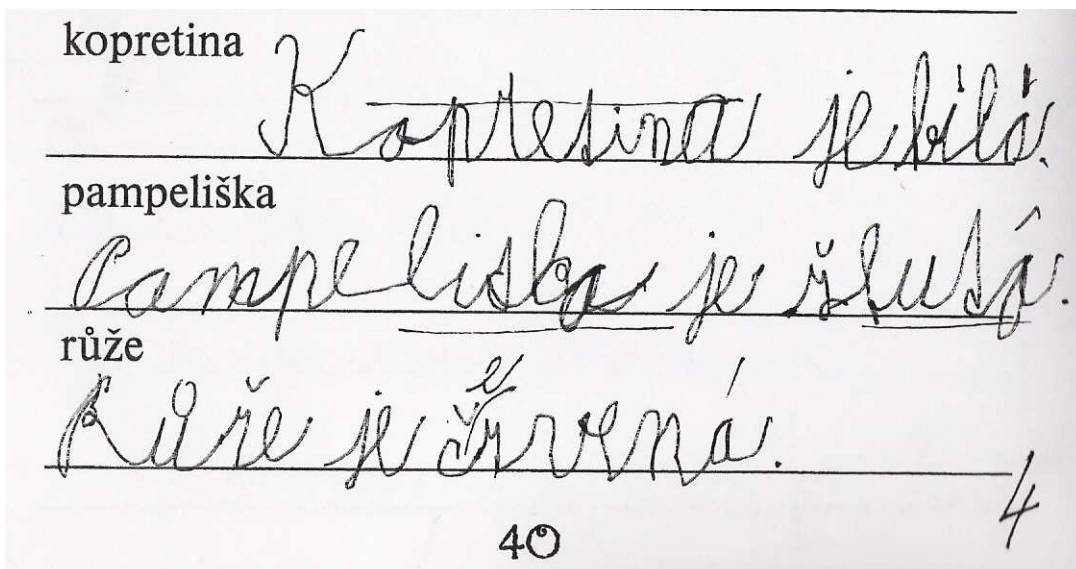 kopretina
Kopretina je bílá.
pampeliška
Pampeliska je žlutá.
růže
Růže je červená.
4
40